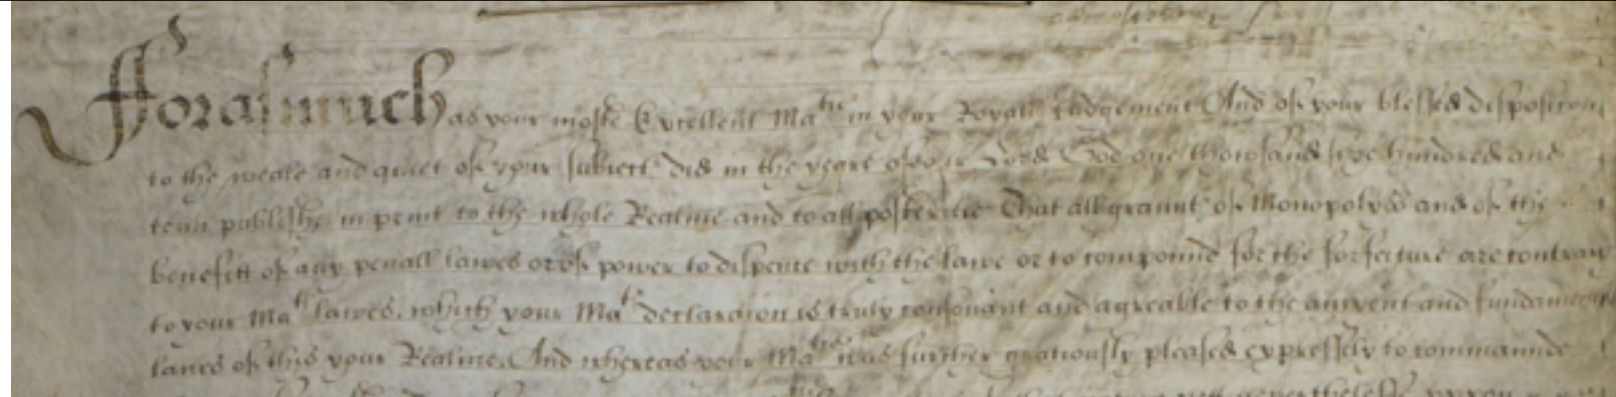 Fforasmuch as your moste Excellent Ma^tie in your Royall Judgement And of your blessed disposicon
to the weale and quiet of your subiect did in the yeare of our Lord God one thowsand sixe hundred and
tenn publishe in print to the whole Realme and to all posteritie That all graunt of Monopolyes and of the
benefitt of any penall lawes or of power to dispence with the lawe or to compound for the forfeiture are contrary
to your Ma^ts lawes, which your Ma^ts declaracion is truly consonant and agreable to the auncient and fundamentall
lawes of this your Realme. And whereas your Ma^tie was further graciously pleased expressely to commaunde
neverthelesse uppon